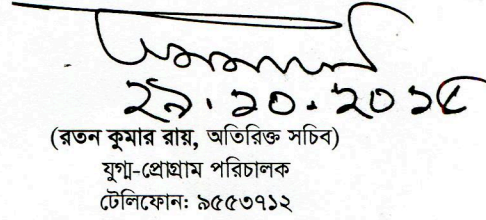 ২৯.১০.২০১৫
(রতন কুমার রায়, অতিরিক্ত সচিব)
যুগ্ম-প্রোগ্রাম পরিচালক
টেলিফোন: ৯৫৫৩৭১২